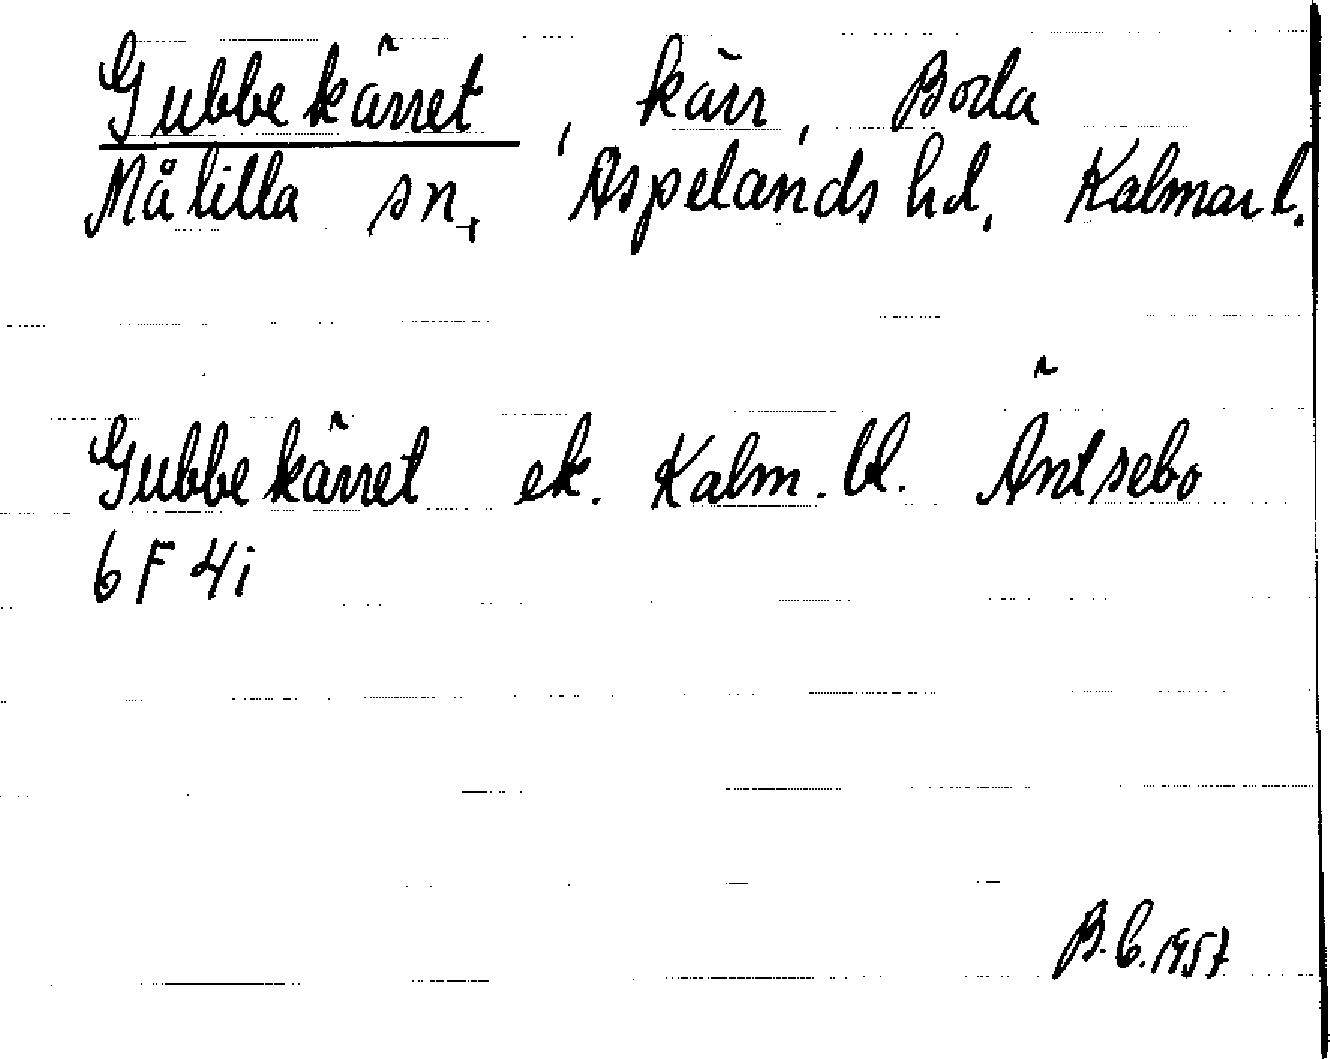 Gubbekärret, kärr, Boda
Målilla sn, Aspelands hd, Kalmar l.
Gubbekärret ek. Kalm. bl. Äntsebo
6 F 4i
B.C. 1957